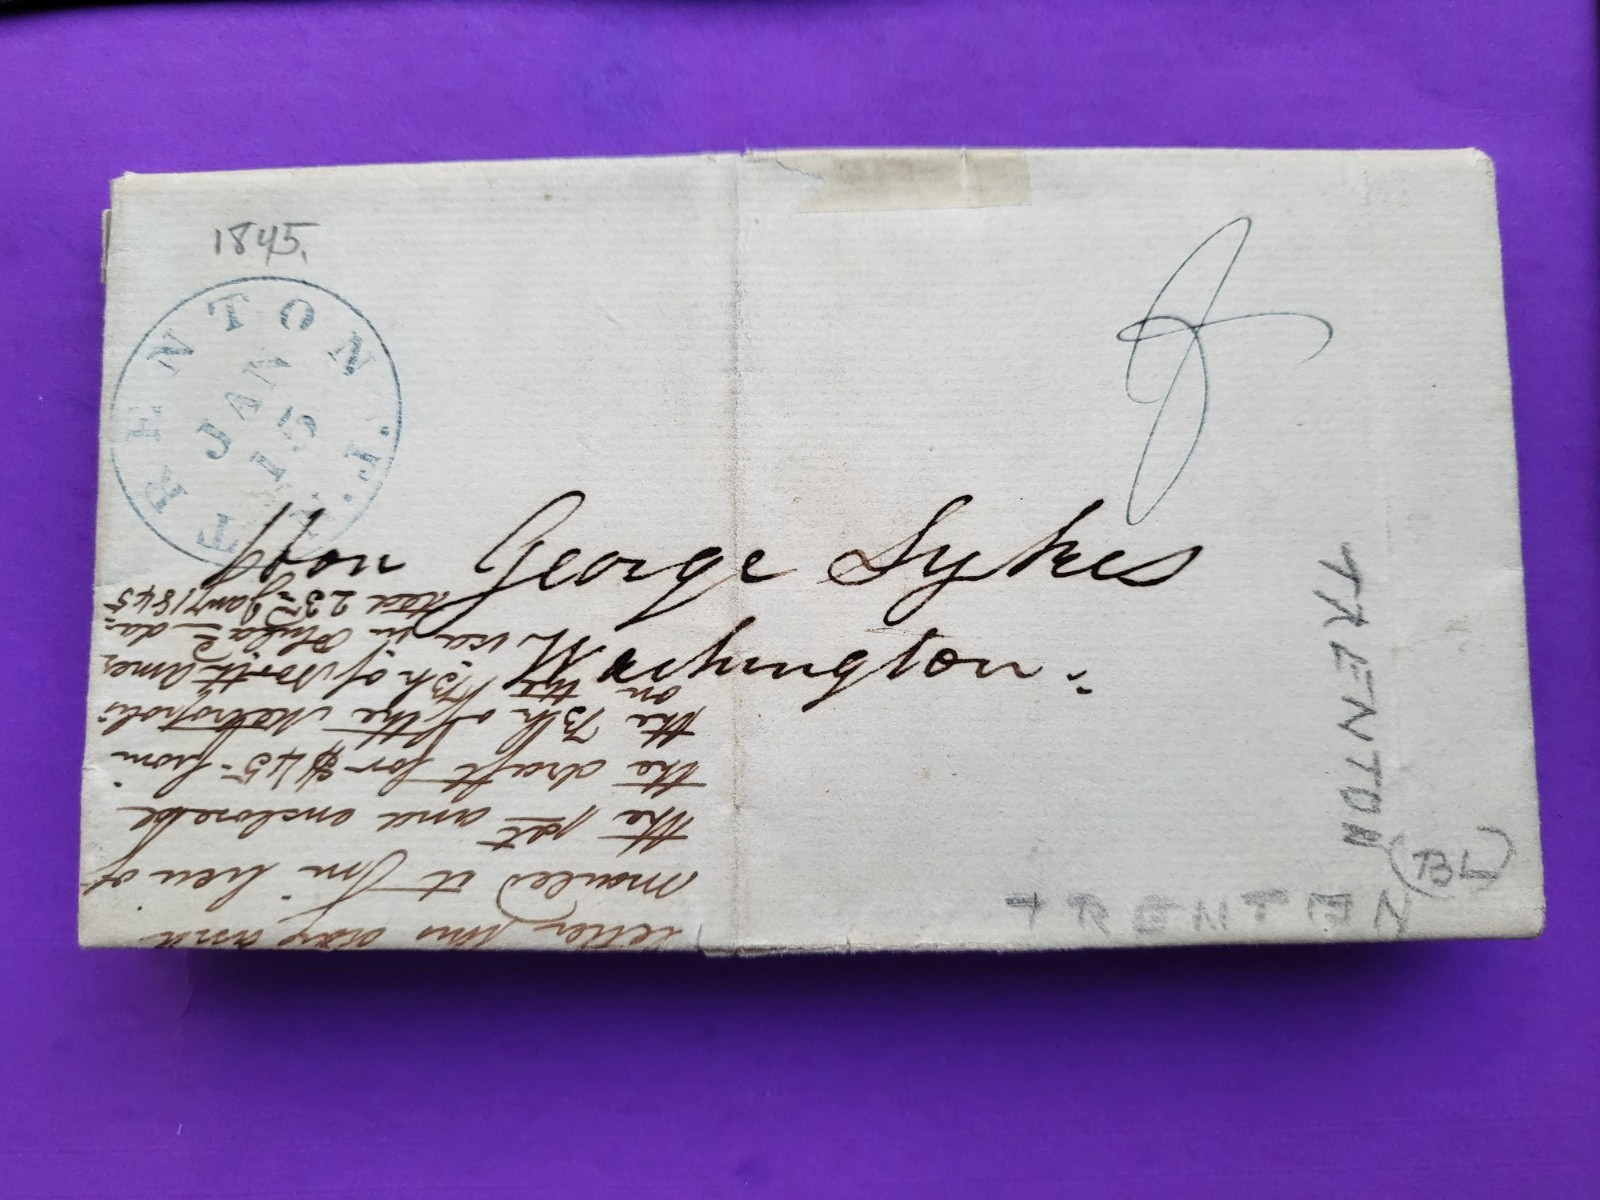 1845.
TRENTON. N. J.
JAN
15
Hon George Sykes
Washington
letter, this day and
mailed it in lieu of
the pst and enclosed
the draft for $45- from
the Bk of the Metropolis
on the Bk of North Amer
ica in Phila- da:
ted 23rd Jany 1845
TRENTON
TRENTON
(BL)